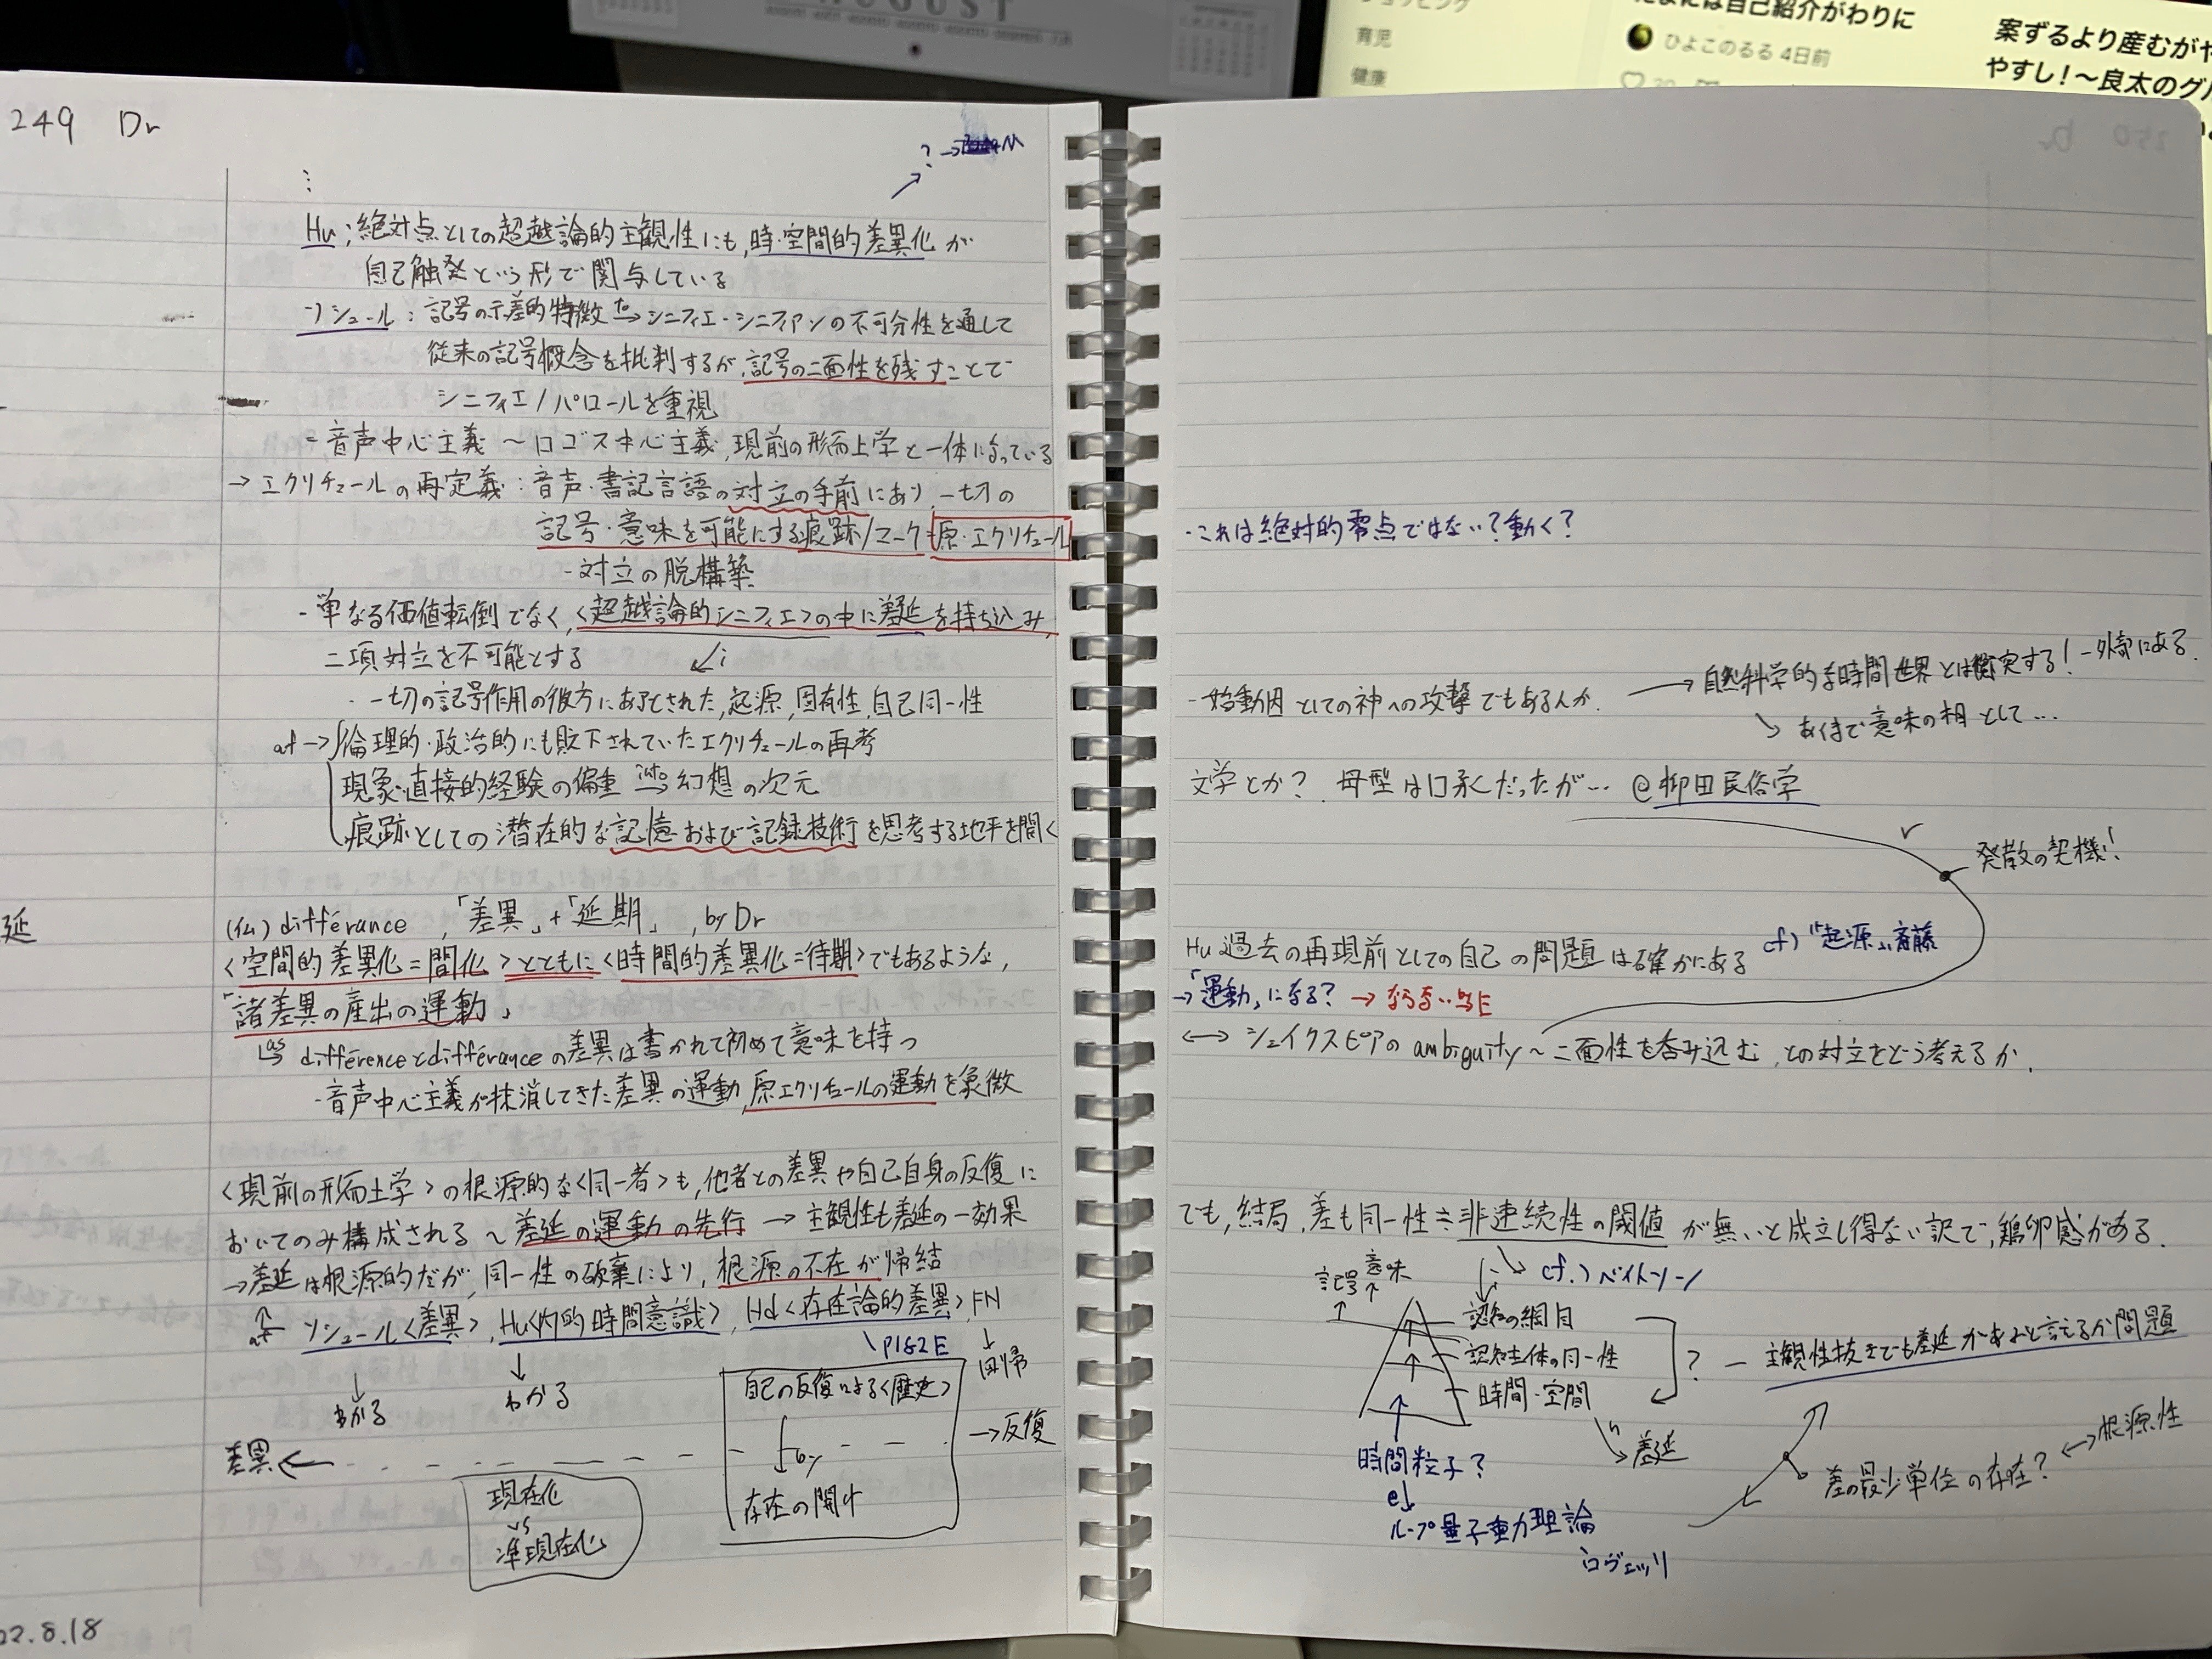 AUGUST
育児
健康
たまには自己紹介がわりに
ひよこのるる 4日前
案ずるより産むがや
やすし！〜良太のグル
249 Dr
? →
Hu；絶対点としての超越論的主観性にも，時・空間的差異化が
自己触発という形で関与している
ソシュール：記号の示差的特徴 to→ シニフィエ・シニフィアンの不可分性を通して
従来の記号概念を批判するが，記号の二面性を残すことで
シニフィエ/パロールを重視
= 音声中心主義 〜ロゴス中心主義，現前の形而上学と一体になっている
→ エクリチュールの再定義：音声・書記言語の対立の手前にあり，一切の
記号・意味を可能にする痕跡/マーク=原・エクリチュール
- 対立の脱構築
- 単なる価値転倒でなく，〈超越論的シニフィエ〉の中に差延を持ち込み，
二項対立を不可能とする
↙i
・一切の記号作用の彼方にあるとされた，起源，固有性，自己同一性
af→ 倫理的・政治的にも貶下されていたエクリチュールの再考
現象・直接的経験の偏重 into→ 幻想の次元
痕跡としての潜在的な記憶および記録技術を思考する地平を開く
延
(仏) différance ，「差異」+「延期」，by Dr
〈空間的差異化=間化〉とともに〈時間的差異化=待期〉でもあるような，
「諸差異の産出の運動」
as↳ différenceとdifféranceの差異は書かれて初めて意味を持つ
- 音声中心主義が抹消してきた差異の運動，原エクリチュールの運動を象徴
〈現前の形而上学〉の根源的な〈同一者〉も，他者との差異や自己自身の反復に
おいてのみ構成される 〜差延の運動の先行 → 主観性も差延の一効果
→差延は根源的だが，同一性の破棄により，根源の不在が帰結
af ソシュール〈差異〉，Hu〈内的時間意識〉，Hd〈存在論的差異〉，FN
P182E
↓
回帰
↓
わかる
↓
わかる
自己の反復による〈歴史〉
↓by
存在の開け
→反復
差異←
現在化
vs
準現在化
22.8.18
・これは絶対的零点ではない？動く？
- 始動因としての神への攻撃でもあるんか． → 自然科学的な時間世界とは衝突する！ - 外部にある．
↘ あくまで意味の相として…
文学とか？ 母型は口承だったが… @柳田民俗学
r
発散の契機！
Hu 過去の再現前としての自己の問題は確かにある cf) 『起源』斎藤
→「運動」になる？ → ならない
↔ シェイクスピアのambiguity〜二面性を呑み込む，との対立をどう考えるか．
でも，結局，差も同一性≒非連続性の閾値が無いと成立し得ない訳で，鶏卵感がある．
cf.) ベイトソン
記号 意味
認知の網目
認知主体の同一性
時間・空間
? - 主観性抜きでも差延があると言えるか問題
差延
時間粒子？
e↓
ループ量子重力理論
ロヴェッリ
差の最少単位の存在？ ↔根源性